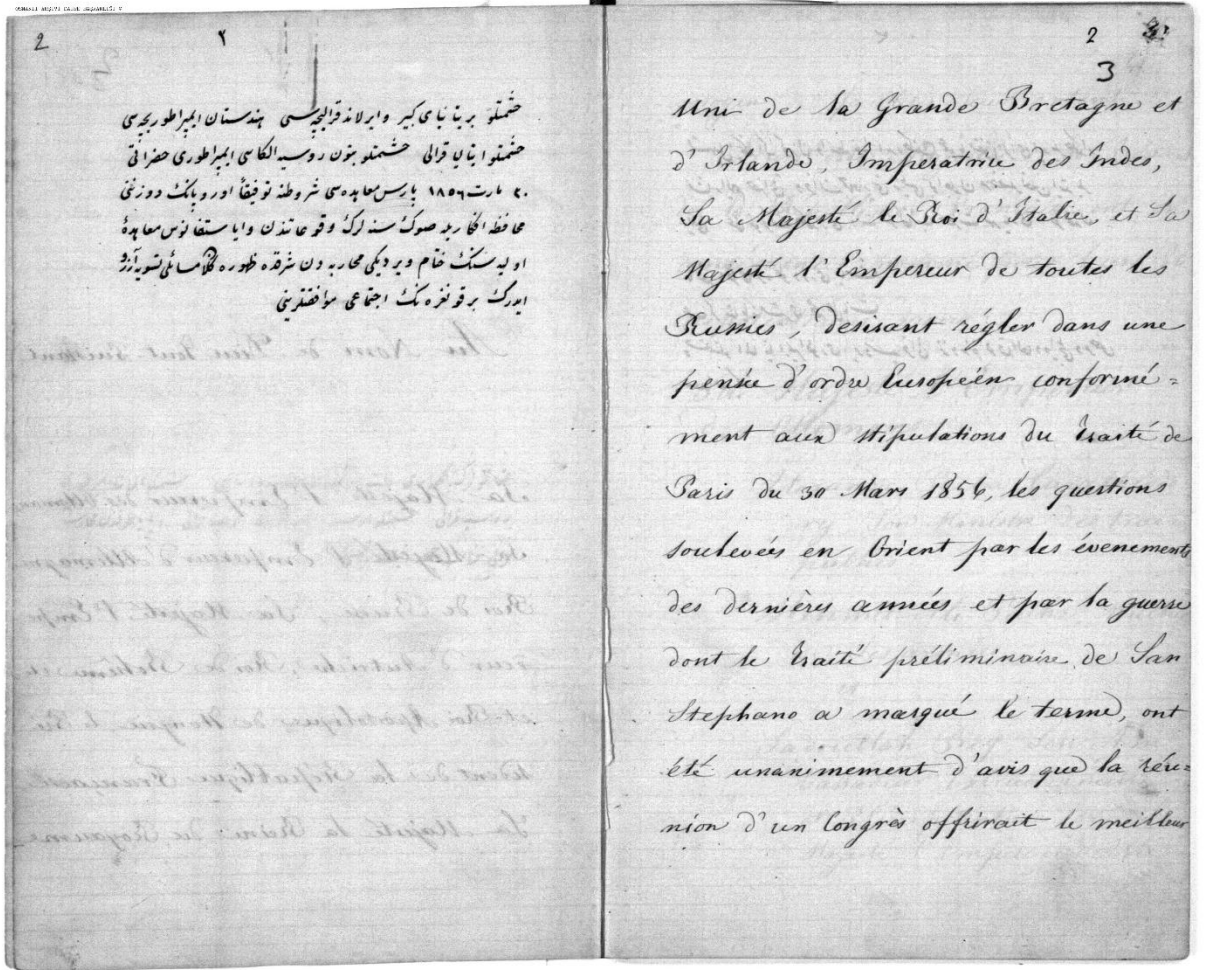 OSMANLI ARŞİVİ DAİRE BAŞKANLIĞI
2
٢
حشمتلو بریتانیای کبیر و ایرلاند قرالیچه‌سی هندستان ایمپراطوریچه‌سی
حشمتلو ایتالیا قرالی حشمتلو بتون روسیه الکاسی ایمپراطوری حضراتی
٣٠ مارت ١٨٥٦ پارس معاهده‌سی شروطنه توفیقاً اوروپانک دوزنی
محافظه افکاریله صوک سنه‌لرک وقوعاتندن و ایاستفانوس معاهدهٔ
اولیه‌سنک ختام ویردیکی محاربه‌دن شرقده ظهوره کلان مسائلی تسویه آرزو
ایدرک بر قونغره‌نک اجتماعی موافقتلرینی
2
3
Uni de la Grande Bretagne et
d'Irlande, Impératrice des Indes,
Sa Majesté le Roi d'Italie, et Sa
Majesté l'Empereur de toutes les
Russies, desirant régler dans une
pensée d'ordre Européen conformé=
ment aux stipulations du traité de
Paris du 30 Mars 1856, les questions
soulevées en Orient par les évenements
des dernières années et par la guerre
dont le traité préliminaire de San
Stephano a marqué le terme, ont
été unanimement d'avis que la réu=
nion d'un Congrès offrirait le meilleur